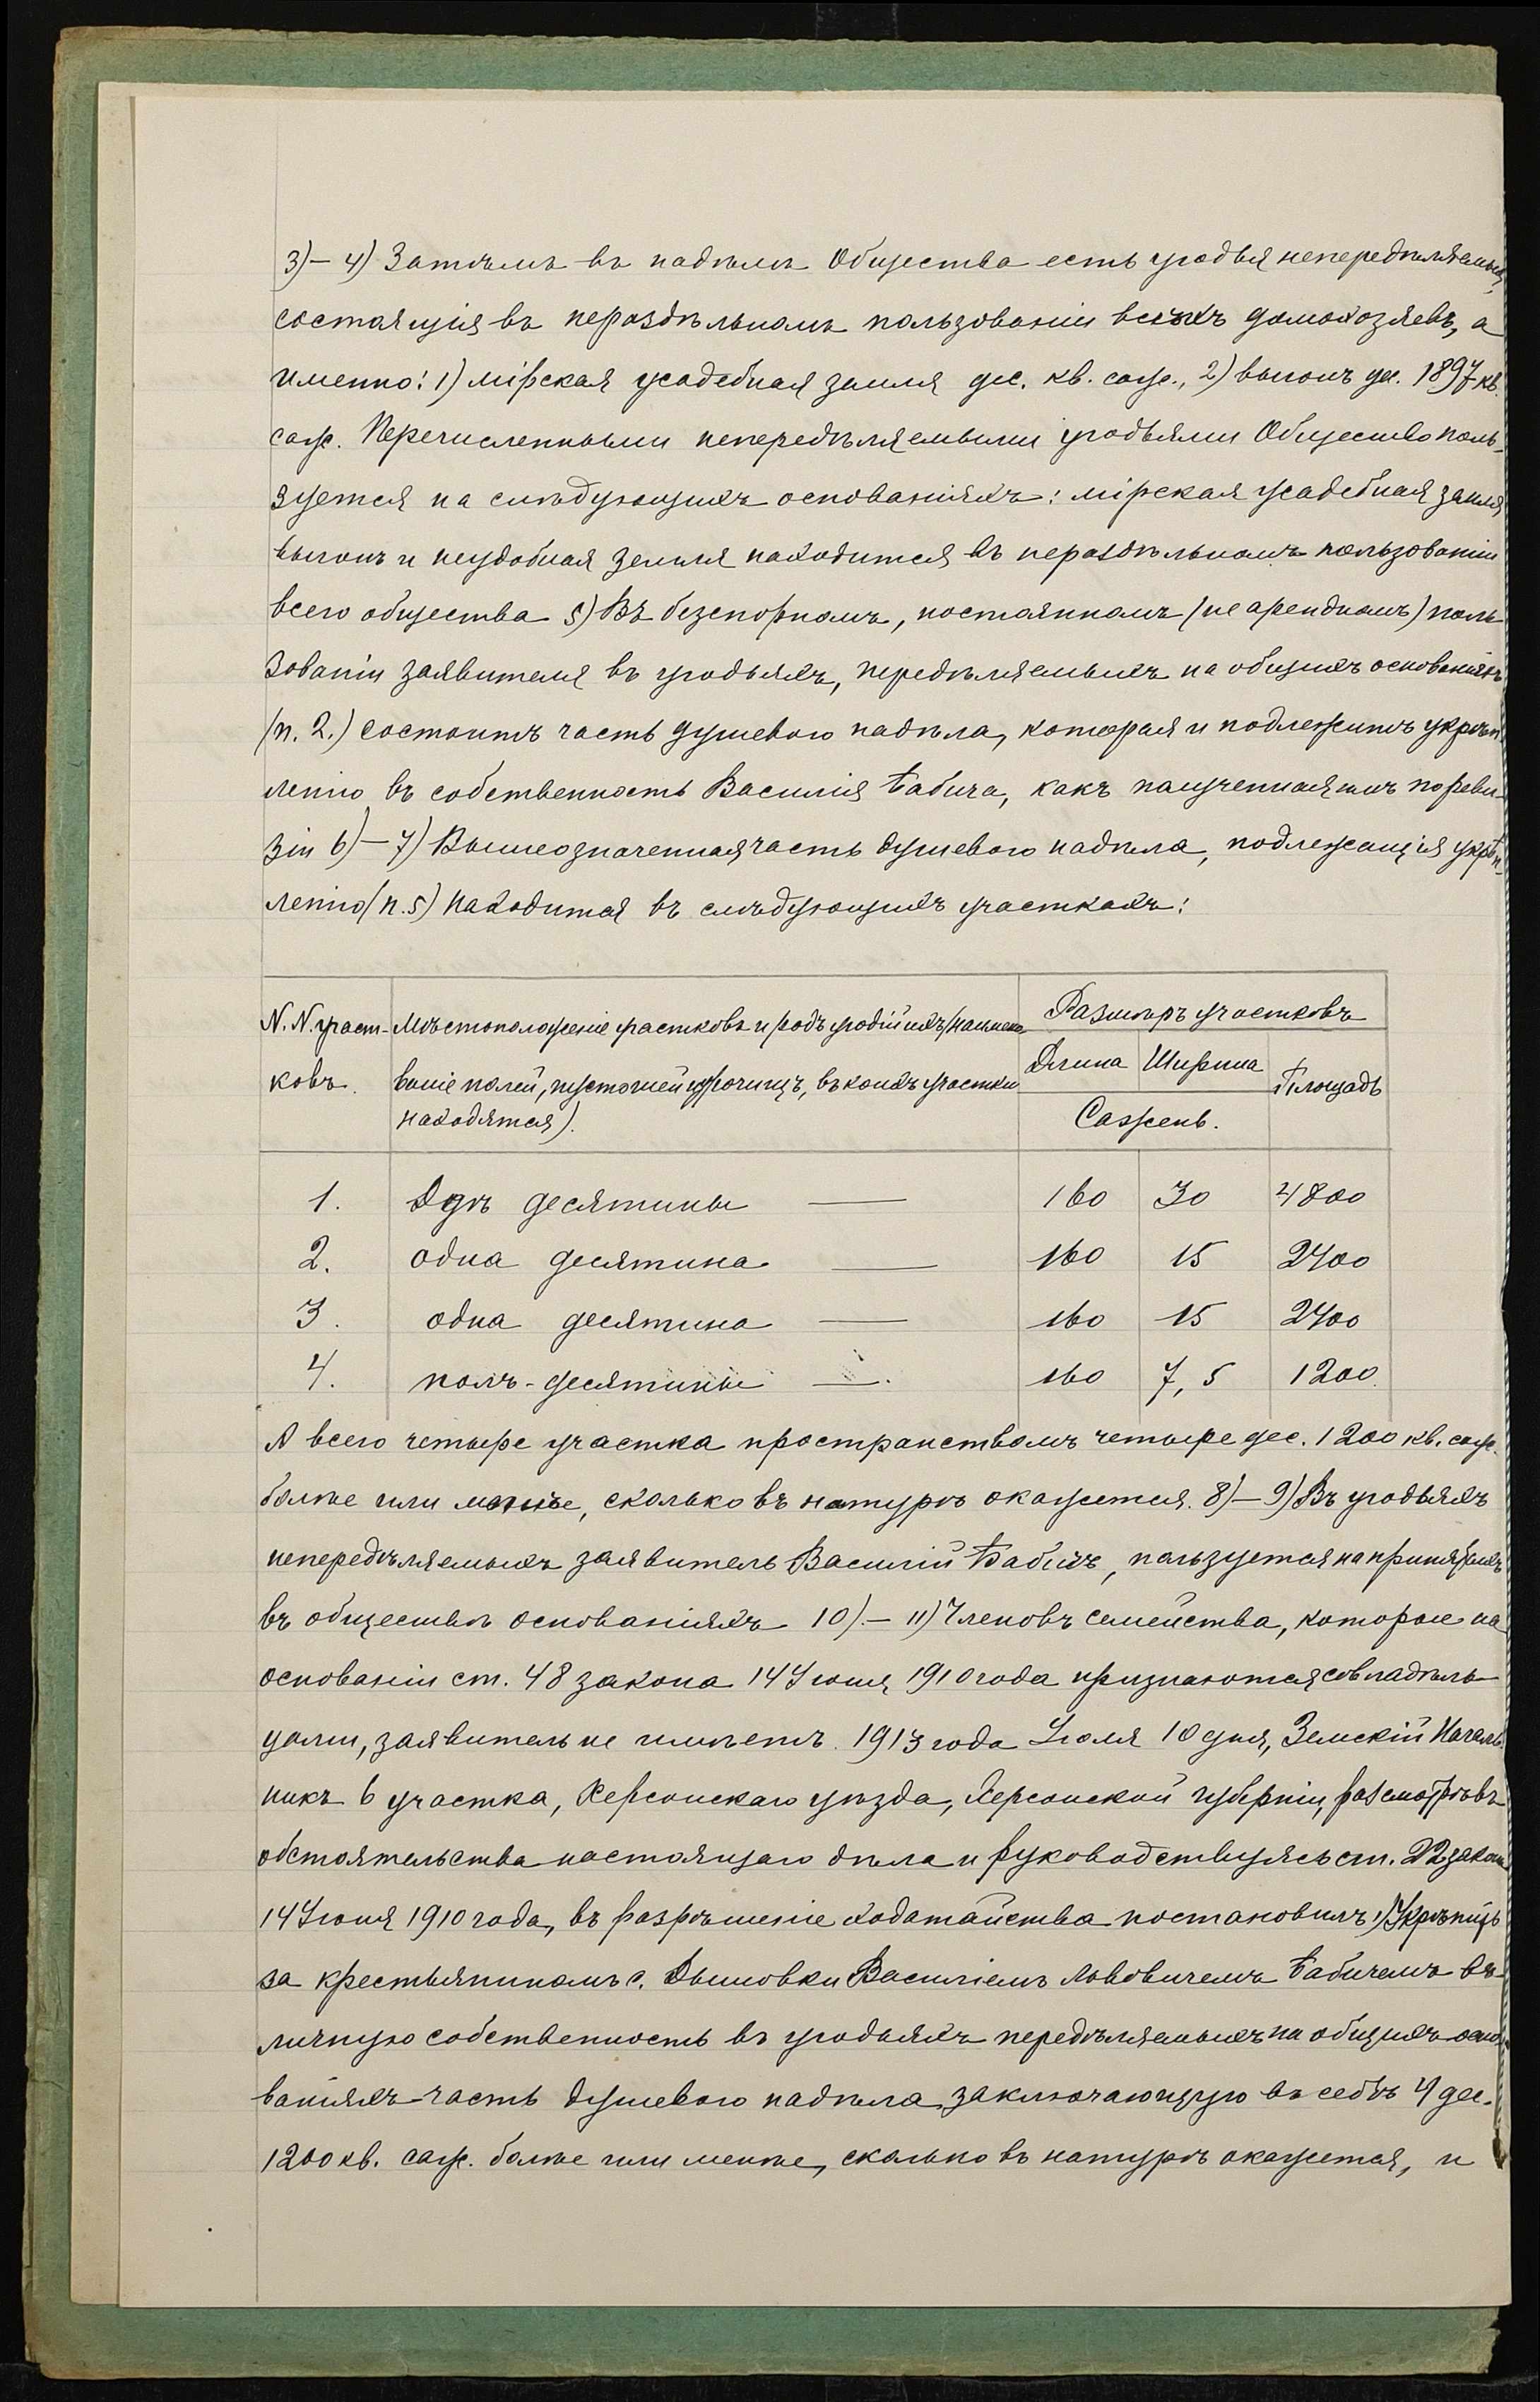 3)– 4) Затѣмъ въ надѣлѣ Общества есть угодья непередѣляемыя,
состоящія въ нераздѣльномъ пользованіи всѣхъ домохозяевъ, а
именно: 1) мірская усадебная земля дес. кв. саж., 2) выгонъ дес. 1897 кв.
саж. Перечисленными непередѣляемыми угодьями Общество поль-
зуется на слѣдующихъ основаніяхъ: мірская усадебная земля,
выгонъ и неудобная земля находится въ нераздѣльномъ пользованіи
всего общества 5) Въ безспорномъ, постоянномъ (не арендномъ) поль-
зованіи заявителя въ угодьяхъ, передѣляемыхъ на общихъ основаніяхъ
(п. 2.) состоитъ часть душевого надѣла, которая и подлежитъ укрѣп-
ленію въ собственность Василія Бабича, какъ полученная имъ по реви-
зіи 6)– 7) Вышеозначенная часть душевого надѣла, подлежащія укрѣп-
ленію (п. 5) находится въ слѣдующихъ участкахъ:
N.N. участ- Мѣстоположеніе участковъ и родъ угодій ихъ (наимено- Размѣръ участковъ
ковъ. ваніе полей, пустошей и урочищъ, въ коихъ участки Длина Ширина Площадь
находятся). Сажень.
1. Двѣ десятины — 160 30 4800
2. одна десятина — 160 15 2400
3. одна десятина — 160 15 2400
4. полъ-десятины —. 160 7,5 1200
А всего четыре участка пространствомъ четыре дес. 1200 кв. саж.
болѣе или менѣе, сколько въ натурѣ окажется. 8)– 9) Въ угодьяхъ
непередѣляемыхъ заявитель Василій Бабичъ, пользуется на принятыхъ
въ обществѣ основаніяхъ 10).– 11) Членовъ семейства, которые на
основаніи ст. 48 закона 14 Іюня 1910 года признаются совладѣль-
цами, заявитель не имѣетъ. 1913 года Іюля 10 дня, Земскій Началь-
никъ 6 участка, Херсонскаго уѣзда, Херсонской губерніи, разсмотрѣвъ
обстоятельства настоящаго дѣла и руководствуясь ст. 22 закона
14 Іюня 1910 года, въ разрѣшеніе ходатайства постановилъ: 1) Укрѣпить
за крестьяниномъ с. Дымовки Василіемъ Львовичемъ Бабичемъ въ
личную собственность въ угодьяхъ передѣляемыхъ на общихъ осно-
ваніяхъ-часть душевого надѣла, заключающую въ себѣ 4 дес.
1200 кв. саж. болѣе или менѣе, сколько въ натурѣ окажется, и